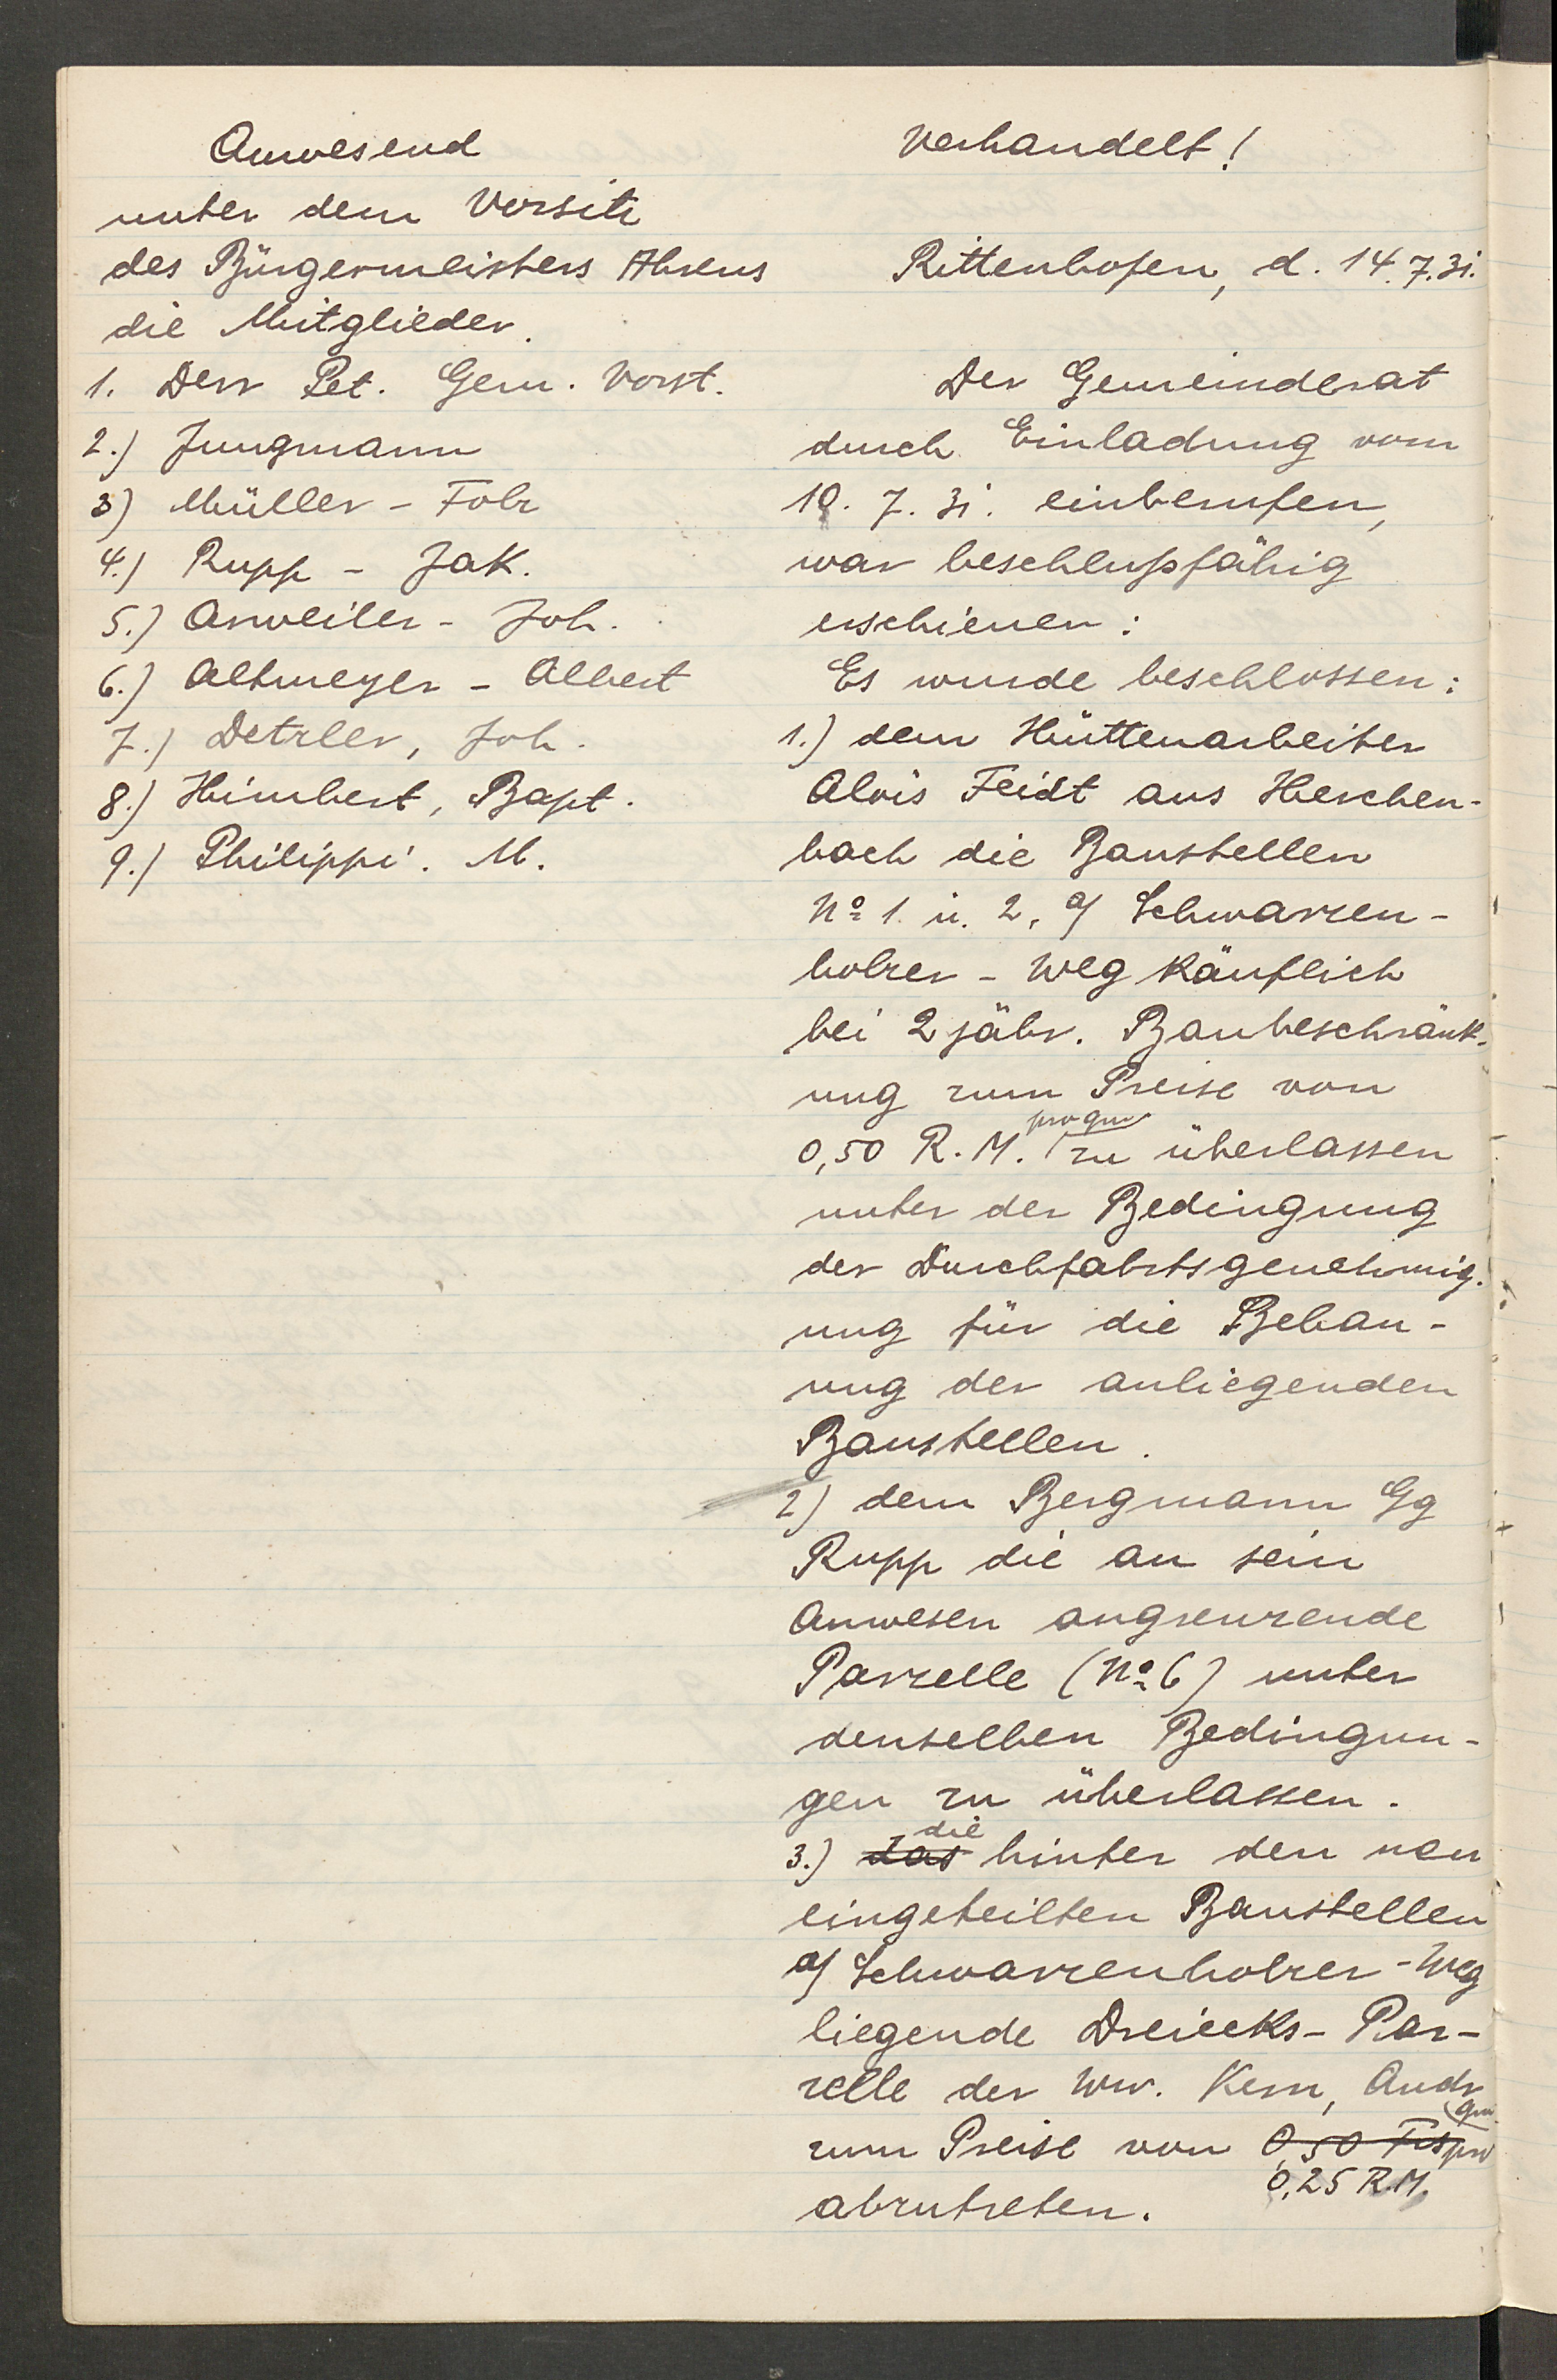 Anwesend
unter dem Vorsitz
des Bürgermeisters Ahrens
die Mitglieder.
1. Derr Pet. Gem. Vorst.
2.) Jungmann
3) Müller - Fohr
4.) Rupp - Jak.
5.) Arweiler - Joh.
6.) Altmeyer - Albert
7.) Detzler, Joh.
8.) Himbert, Bapt.
9.) Philippi. M.
Verhandelt!
Rittenhofen, d. 14.7.31.
Der Gemeinderat
durch Einladung vom
10. 7. 31. einberufen,
war beschlußfähig
erschienen:
Es wurde beschlossen:
1.) dem Hüttenarbeiter
Alois Feidt aus Herchen-
bach die Baustellen
No 1. u. 2, a/ Schwarzen-
holzer - Weg käuflich
bei 2 jähr. Baubeschränk-
ung zum Preise von
0,50 R.M. pro qm zu überlassen
unter der Bedingung
der Durchfahrtsgenehmig-
ung für die Bebau-
ung der anliegenden
Baustellen.
2) dem Bergmann Gg
Rupp die an sein
Anwesen angrenzende
Parzelle (No 6) unter
denselben Bedingun-
gen zu überlassen.
3.) das die hinter den neu
eingeteilten Baustellen
a/ Schwarzenholzer - Weg
liegende Dreiecks - Par-
zelle der Ww. Kern, Andr
zum Preise von 0,50 Frs pro qm
0,25 R.M.
abzutreten.